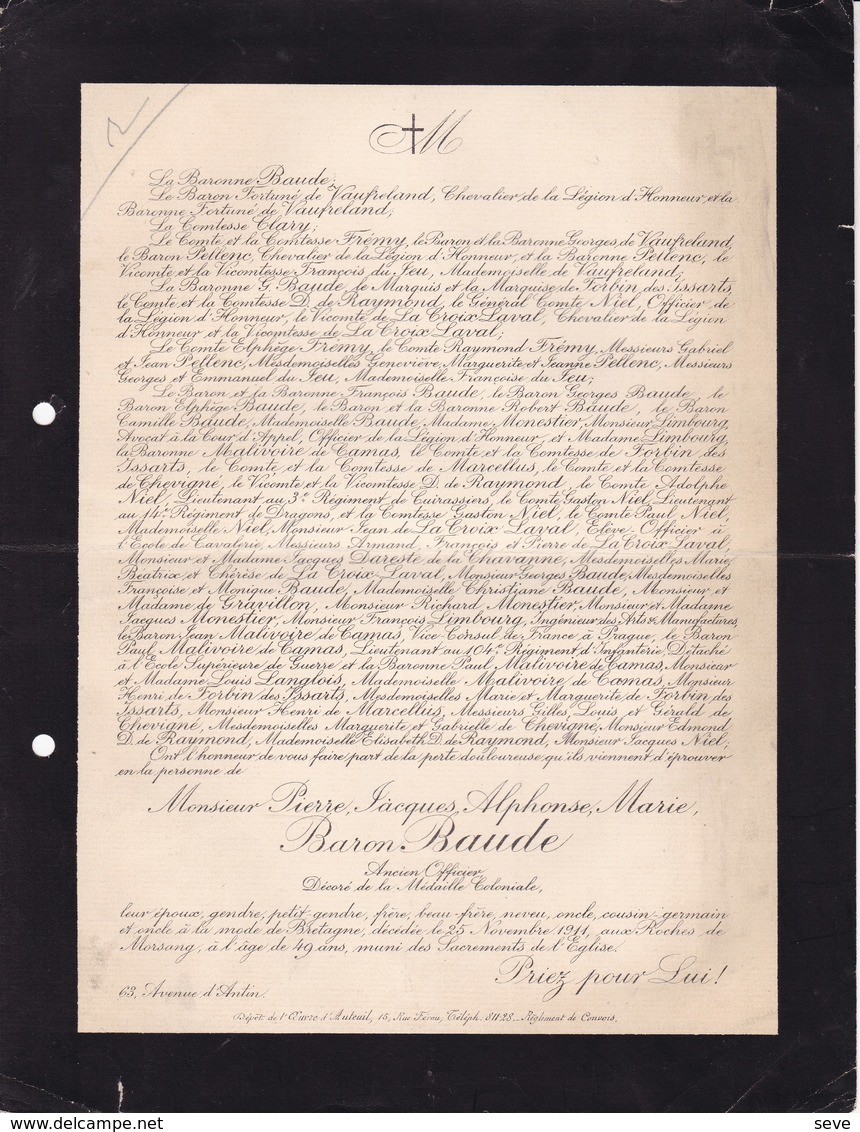 M
La Baronne Baude;
Le Baron Fortuné de Vaufreland, Chevalier de la Légion d'Honneur, et la
Baronne Fortuné de Vaufreland;
La Comtesse Clary;
Le Comte et la Comtesse Frémy, le Baron et la Baronne Georges de Vaufreland,
le Baron Pellenc, Chevalier de la Légion d'Honneur, et la Baronne Pellenc, le
Vicomte et la Vicomtesse François du Jeu, Mademoiselle de Vaufreland;
La Baronne G. Baude, le Marquis et la Marquise de Forbin des Issarts,
le Comte et la Comtesse D. de Raymond, le Général Comte Niel, Officier de
la Légion d'Honneur, le Vicomte de La Croix Laval, Chevalier de la Légion
d'Honneur et la Vicomtesse de La Croix Laval;
Le Comte Elphège Frémy, le Comte Raymond Frémy, Messieurs Gabriel
et Jean Pellenc, Mesdemoiselles Geneviève, Marguerite et Jeanne Pellenc, Messieurs
Georges et Emmanuel du Jeu, Mademoiselle Françoise du Jeu;
Le Baron et la Baronne François Baude, le Baron Georges Baude, le
Baron Elphège Baude, le Baron et la Baronne Robert Baude, le Baron
Camille Baude, Mademoiselle Baude, Madame Monestier, Monsieur Limbourg,
Avocat à la Cour d'Appel, Officier de la Légion d'Honneur, et Madame Limbourg,
la Baronne Malivoire de Camas, le Comte et la Comtesse de Forbin des
Issarts, le Comte et la Comtesse de Marcellus, le Comte et la Comtesse
de Chevigné, le Vicomte et la Vicomtesse D. de Raymond, le Comte Adolphe
Niel, Lieutenant au 3e Régiment de Cuirassiers, le Comte Gaston Niel, Lieutenant
au 14e Régiment de Dragons, et la Comtesse Gaston Niel, le Comte Paul Niel,
Mademoiselle Niel, Monsieur Jean de La Croix Laval, Elève-Officier à
l'Ecole de Cavalerie, Messieurs Armand, François et Pierre de La Croix Laval,
Monsieur et Madame Jacques Dareste de la Chavanne, Mesdemoiselles Marie,
Béatrix et Thérèse de La Croix-Laval, Monsieur Georges Baude, Mesdemoiselles
Françoise et Monique Baude, Mademoiselle Christiane Baude, Monsieur et
Madame de Gravillon, Monsieur Richard Monestier, Monsieur et Madame
Jacques Monestier, Monsieur François Limbourg, Ingénieur des Arts & Manufactures,
le Baron Jean Malivoire de Camas, Vice-Consul de France à Prague, le Baron
Paul Malivoire de Camas, Lieutenant au 104e Régiment d'Infanterie, Détaché
à l'Ecole Supérieure de Guerre et la Baronne Paul Malivoire de Camas, Monsieur
et Madame Louis Langlois, Mademoiselle Malivoire de Camas, Monsieur
Henri de Forbin des Issarts, Mesdemoiselles Marie et Marguerite de Forbin des
Issarts, Monsieur Henri de Marcellus, Messieurs Gilles, Louis et Gérald de
Chevigné, Mesdemoiselles Marguerite et Gabrielle de Chevigné, Monsieur Edmond
D. de Raymond, Mademoiselle Elisabeth D. de Raymond, Monsieur Jacques Niel;
Ont l'honneur de vous faire part de la perte douloureuse qu'ils viennent d'éprouver
en la personne de
Monsieur Pierre, Jacques, Alphonse, Marie,
Baron Baude
Ancien Officier,
Décoré de la Médaille Coloniale,
leur époux, gendre, petit-gendre, frère, beau-frère, neveu, oncle, cousin-germain
et oncle à la mode de Bretagne, décédé le 25 Novembre 1911, aux Roches de
Morsang, à l'âge de 49 ans, muni des Sacrements de l'Eglise.
Priez pour Lui!
63, Avenue d'Antin.
Dépôt de l'Œuvre d'Auteuil, 15, Rue Férou, Téléph. 811-28 _ Règlement de Convois.
seve